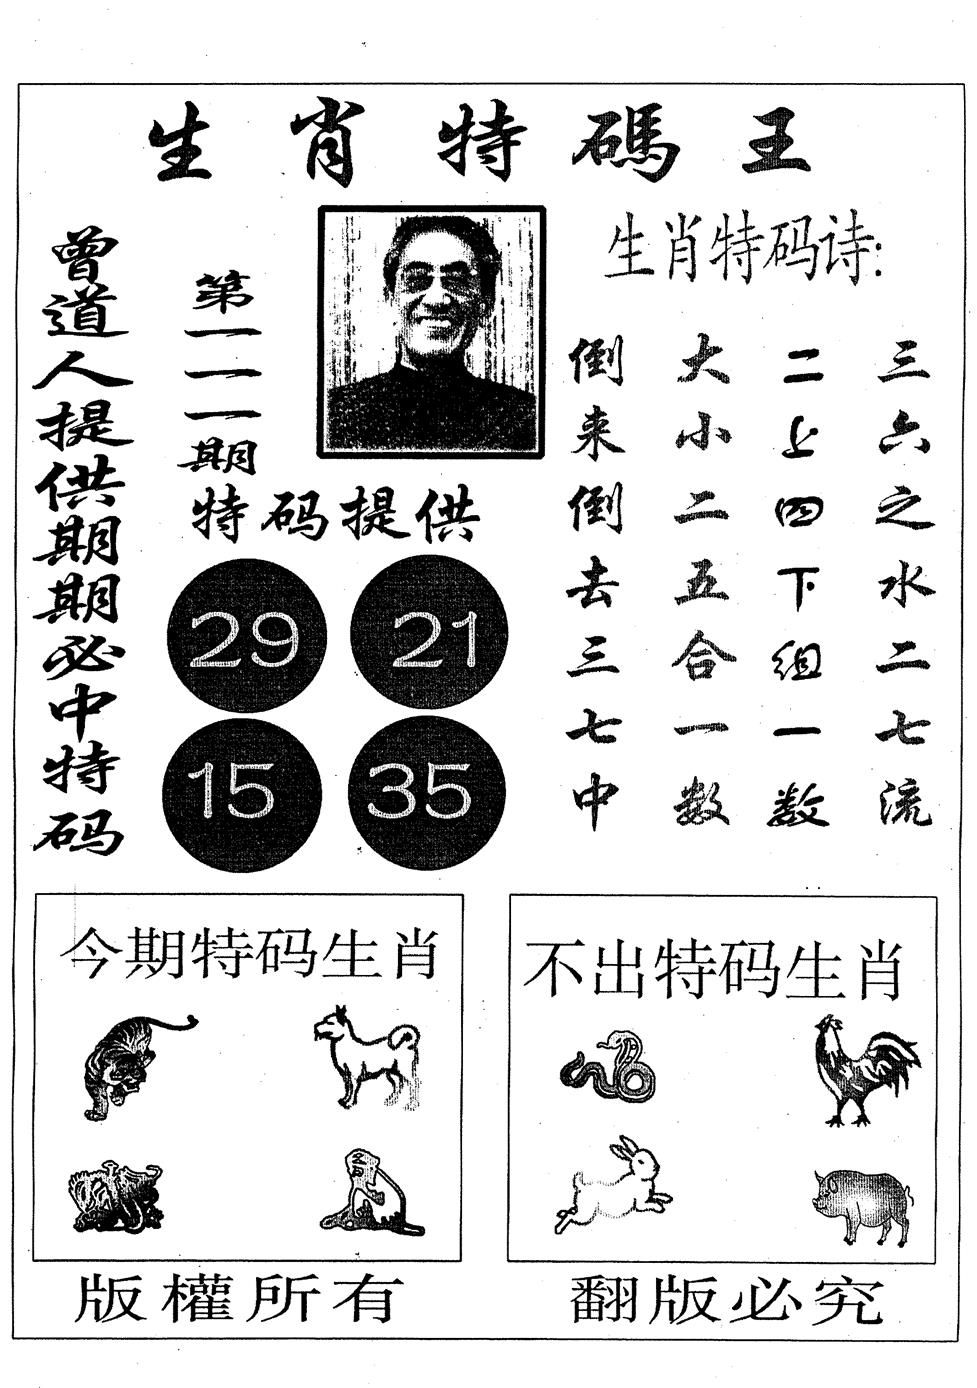 生肖特碼王
曾道人提供期期必中特码
第一一一期
特码提供
29 21
15 35
生肖特码诗:
三六之水二七流
二上四下组一数
大小二五合一数
倒来倒去三七中
今期特码生肖
不出特码生肖
版權所有
翻版必究